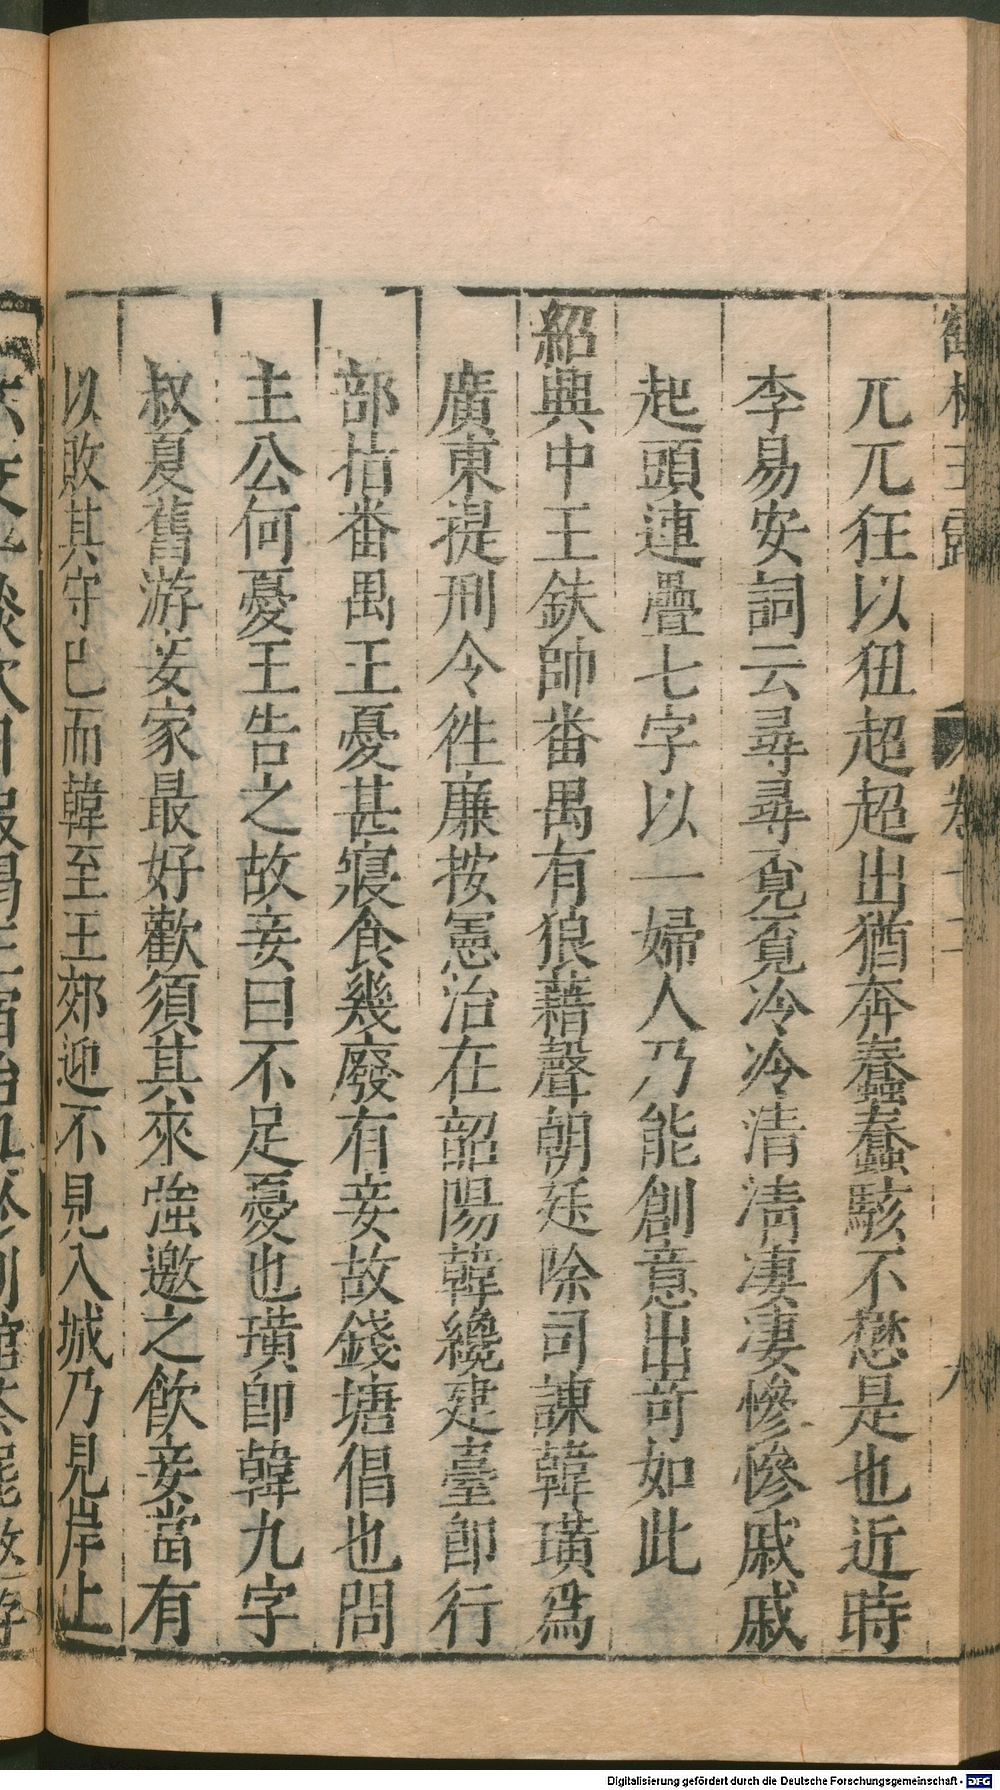 兀兀狂以狃超超出猶奔蠢蠢駭不懋是也近時
李易安詞云尋尋覓覓冷冷清清凄凄慘慘戚戚
起頭連疊七字以一婦人乃能創意出苛如此
紹興中王鈇帥番禺有狼藉聲朝廷除司諫韓璜爲
廣東提刑令徃廉按憲治在韶陽韓纔建臺卽行
部指番禺王憂甚寢食幾廢有妾故錢塘倡也問
主公何憂王告之故妾曰不足憂也璜卽韓九字
叔夏舊游妾家最好歡須其來強邀之飮妾當有
以敗其守已而韓至王郊迎不見入城乃見岸上
Digitalisierung gefördert durch die Deutsche Forschungsgemeinschaft - DFG